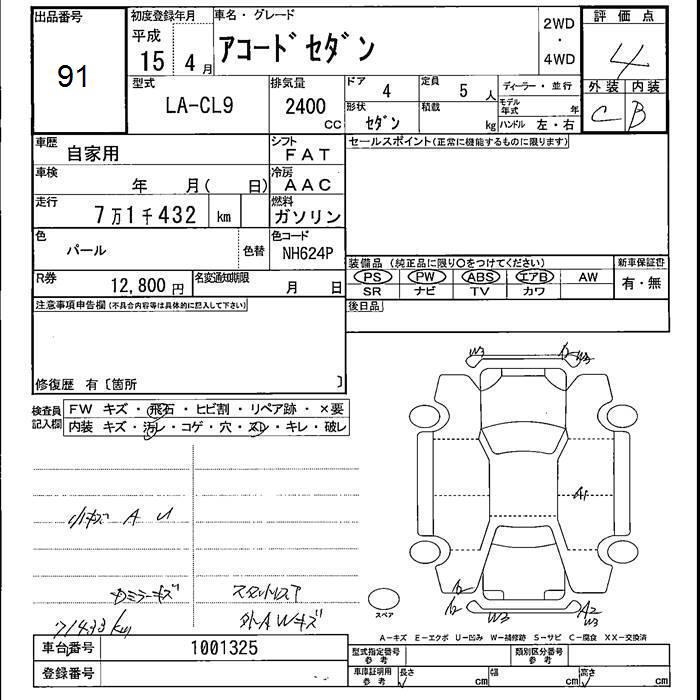 出品番号 91
初度登録年月 平成 15 4月
車名・グレード アコードセダン
2WD・4WD
評価点 4
外装 C 内装 B
型式 LA-CL9
排気量 2400 CC
ドア 4
定員 5 人
ディーラー・並行
形状 セダン
積載 kg
モデル年式 年
ハンドル 左・右
車歴 自家用
シフト FAT
セールスポイント(正常に機能するものに限ります)
車検 年 月( 日)
冷房 AAC
走行 7万1千432 km
燃料 ガソリン
色 パール 色替
色コード NH624P
装備品 (純正品に限り○をつけてください)
新車保証書 有・無
PS PW ABS エアB AW
SR ナビ TV カワ
R券 12,800円
名変通知期限 月 日
後日品
注意事項申告欄(不具合内容等は具体的に記入して下さい)
修復歴 有〔箇所 〕
検査員記入欄
FW キズ・飛石・ヒビ割・リペア跡・×要
内装 キズ・汚レ・コゲ・穴・スレ・キレ・破レ
W3 W3
A1
小キズ A U
ミラーキズ
71433km
外AWキズ
スペア
W3 A2 W3
A-キズ E-エクボ U-凹み W-補修跡 S-サビ C-腐食 XX-交換済
車台番号 1001325
型式指定番号 参考
類別区分番号 参考
登録番号
車庫証明用 参考
長さ cm 幅 cm 高さ cm